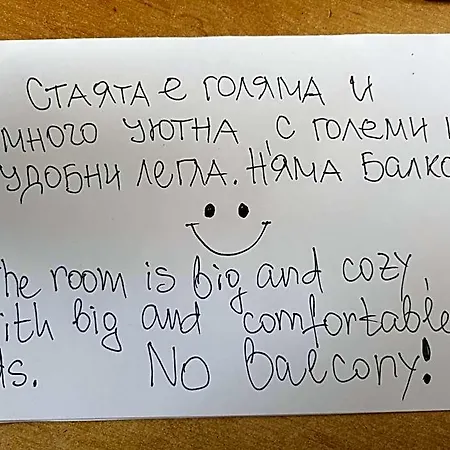 Стаята е голяма и
много уютна, с големи и
удобни легла. Няма Балко
he room is big and cozy,
ith big and comfortable
ds. No balcony!